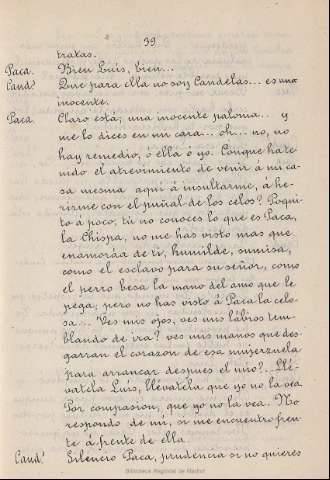 39
tratas.
Paca. Bien Luis, bien...
Cand.s Que para ella no soy Candelas... es una
inocente.
Paca. Claro está; una inocente paloma... y
me lo dices en mi cara... oh... no, no
hay remedio, ó ella ó yo. Conque ha te-
nido el atrevimiento de venir á mi ca-
sa mesma aqui á insultarme, á he-
rirme con el puñal de los celos? Poqui-
to á poco; tú no conoces lo que es Paca,
la Chispa, no me has visto más que
enamoráa de ti, humilde, sumisa,
como el esclavo para su señor, como
el perro besa la mano del amo que le
pega; pero no has visto á Paca la celo-
sa... Ves mis ojos, ves mis lábios tem-
blando de ira? ves mis manos que des-
garran el corazon de esa mujerzuela
para arrancar despues el mio?.. Llé-
vatela Luis, llévatela que yo no la vea.
Por compasion, que yo no la vea. No
respondo de mi, si me encuentro fren-
te á frente de ella.
Cand.s Silencio Paca, prudencia si no quieres
Biblioteca Regional de Madrid